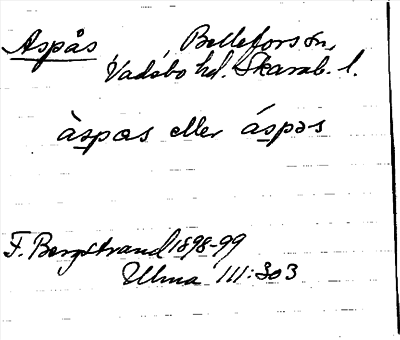 Aspås, Bellefors sn,
Vadsbo hd. Skarab. l.
àspas eller áspəs
F. Bergstrand 1898-99
Ulma 111:303